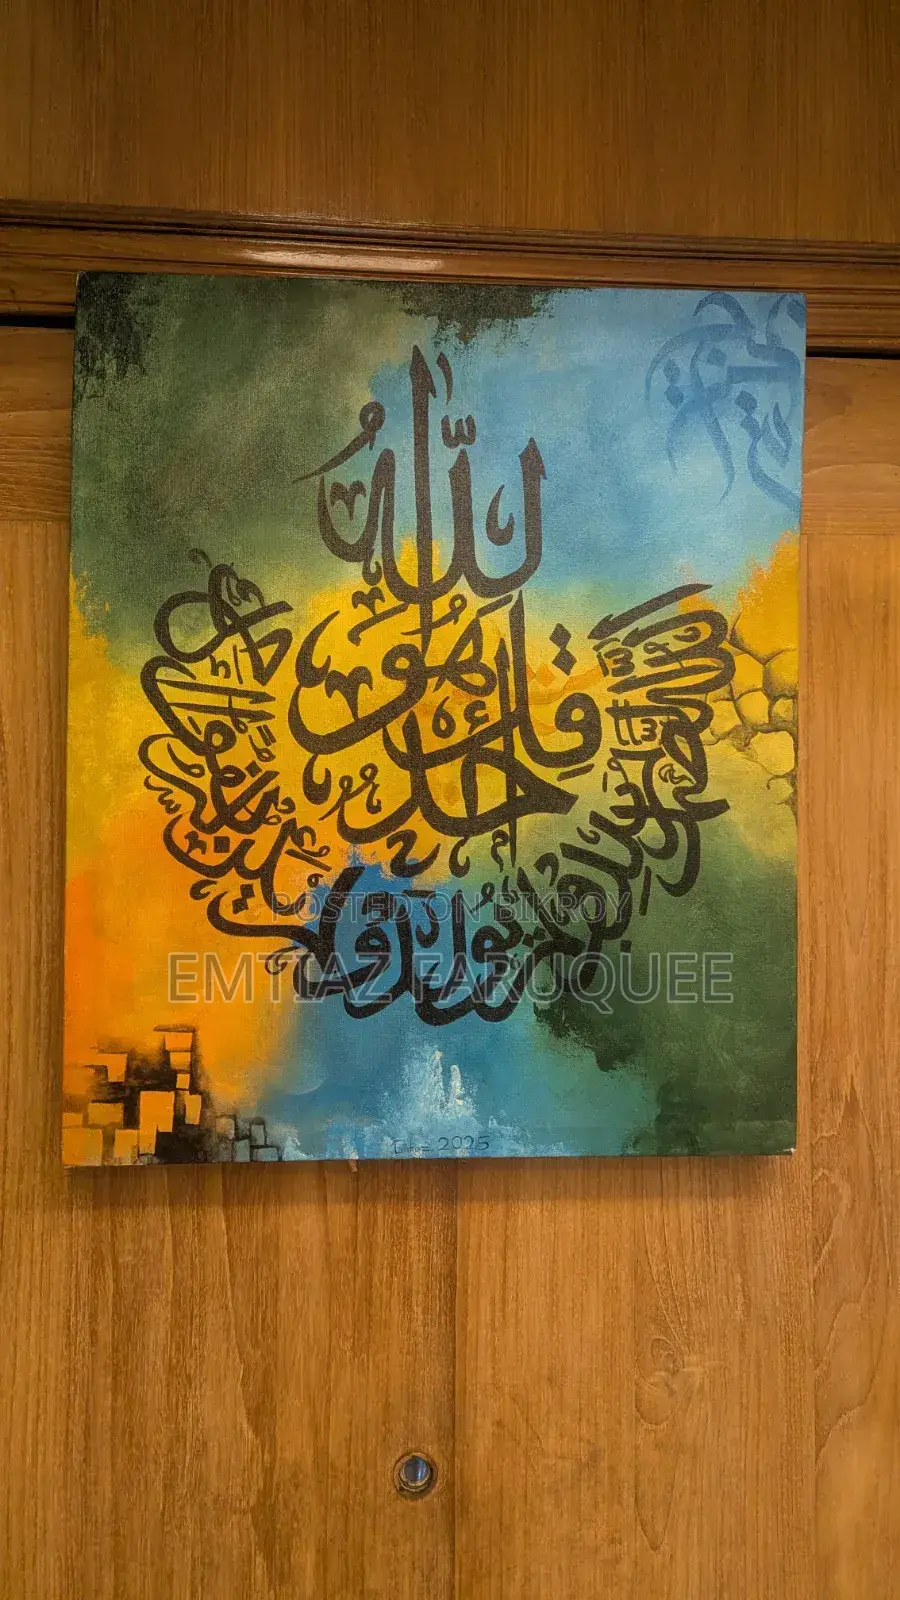 قل هو الله أحد
الله الصمد لم يلد ولم يولد ولم يكن له كفوا أحد
POSTED ON BIKROY
EMTIAZ FARUQUEE
2025